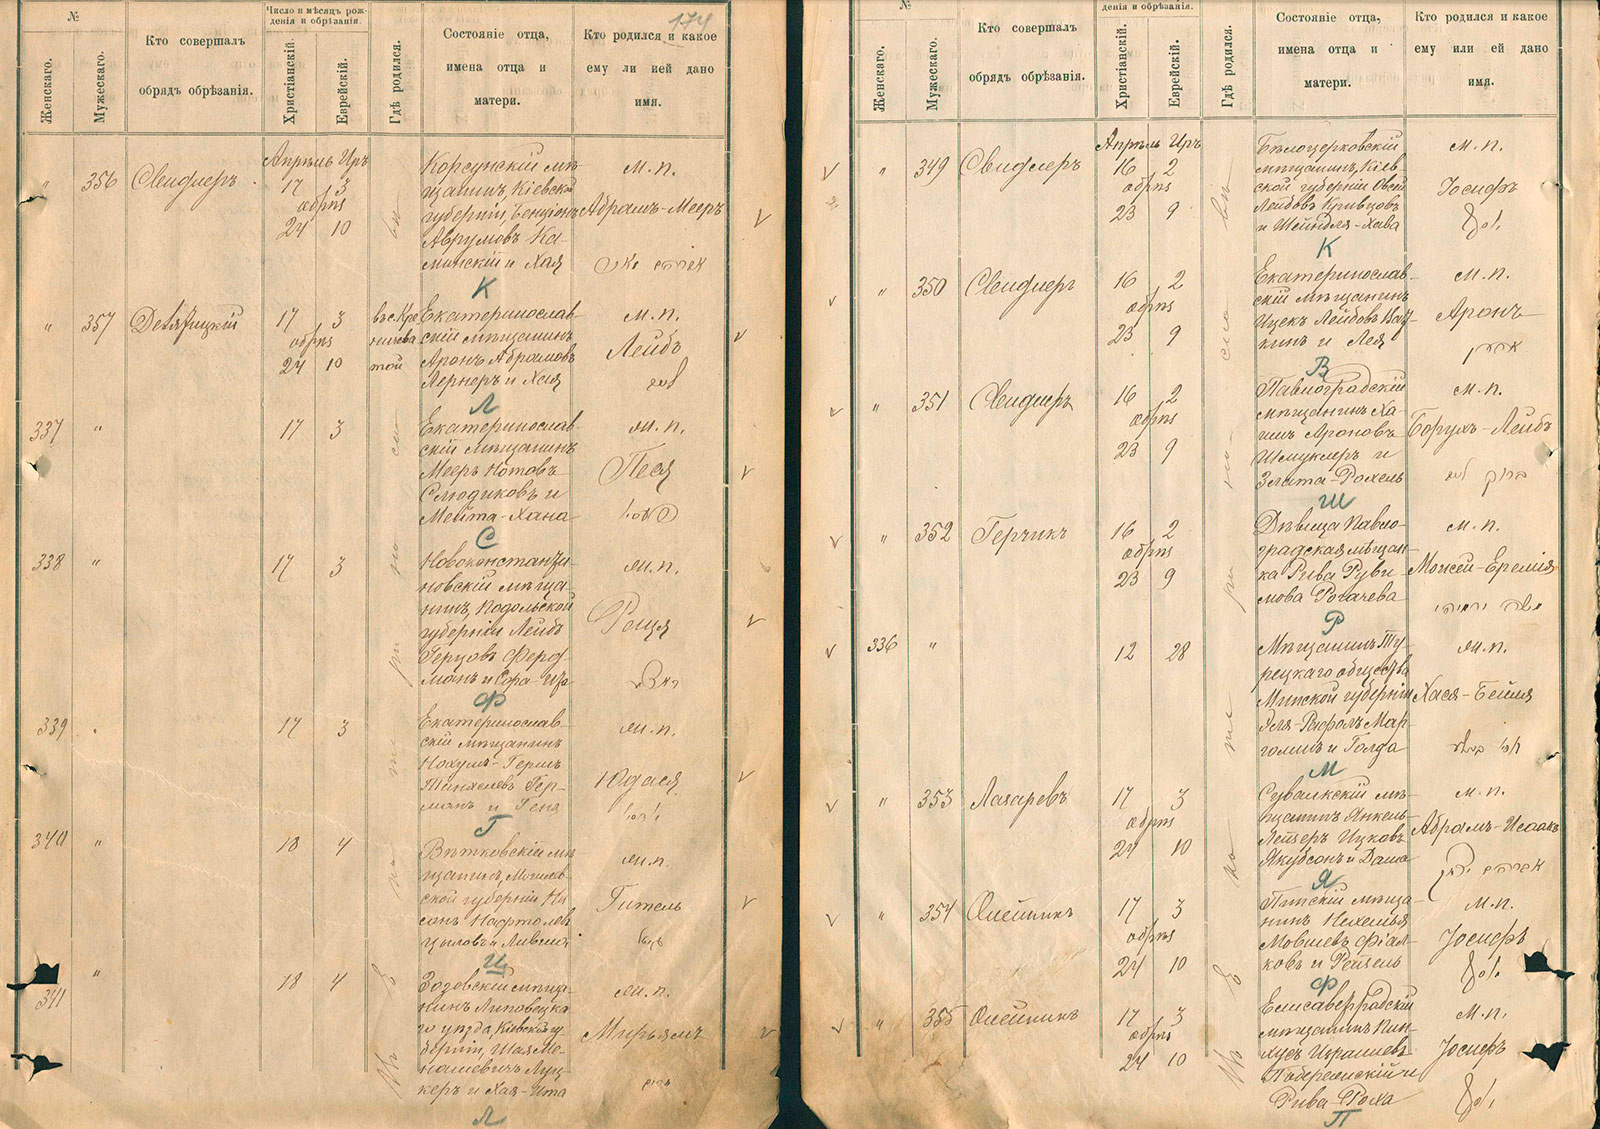 174
№
Женскаго.
Мужескаго.
Кто совершалъ
обрядъ обрѣзанія.
Число и мѣсяцъ рож-
денія и обрѣзанія.
Христіанскій.
Еврейскій.
Гдѣ родился.
Состояніе отца,
имена отца и
матери.
Кто родился и какое
ему ли ией дано
имя.
" 356 Свидлеръ
Апрѣль Иръ
17 3
обрѣз
24 10
Корсунскій мѣ-
щанинъ, Кіевской
губерніи, Бенціонъ
Аврумовъ Ка-
минскій и Хая
К
м.п.
Абрамъ-Мееръ
" 357
17 3
обрѣз
24 10
въ с. Кре
той
Екатеринослав-
скій мѣщанинъ
Аронъ Абрамовъ
Лернеръ и Хая
Л
м.п.
Лейбъ
337 "
17 3
Екатеринослав-
скій мѣщанинъ
Мееръ Нотовъ
Слюдиковъ и
Мейта-Хана
С
ж.п.
Песя
338 "
17 3
Новоконстанти-
новскій мѣща-
нинъ, Подольской
губерніи Лейбъ
Герцовъ Ферд-
манъ и Сора-Ита
Ф
ж.п.
Рейзя
339
17 3
Екатеринослав-
скій мѣщанинъ
Нохумъ-Гершъ
Гер-
манъ и Геня
Г
ж.п.
Юдася
340 "
18 4
Вѣтковскій мѣ-
щанинъ, Могилев-
ской губерніи Ни-
сонъ Нафтолевъ
Ц
ж.п.
Гитель
341 "
18 4
Зозовскій мѣща-
нинъ Липовецка-
го уѣзда, Кіевской гу-
берніи, Шая Ме-
нашевичъ Луц-
керъ и Хая-Ита
Л
ж.п.
Мирьямъ
№
Женскаго.
Мужескаго.
Кто совершалъ
обрядъ обрѣзанія.
денія и обрѣзанія.
Христіанскій.
Еврейскій.
Гдѣ родился.
Состояніе отца,
имена отца и
матери.
Кто родился и какое
ему или ей дано
имя.
" 349 Свидлеръ
Апрѣль Иръ
16 2
обрѣз
23 9
Бѣлоцерковскій
мѣщанинъ, Кіев-
ской губерніи Овсей
Лейбовъ Кривцовъ
и Шейндля-Хава
К
м.п.
Іосифъ
יוסף
" 350 Свидлеръ
16 2
обрѣз
23 9
Екатеринослав-
скій мѣщанинъ
Ицекъ Лейбовъ
кинъ и Лея
В
м.п.
Аронъ
אהרן
" 351 Свидлеръ
16 2
обрѣз
23 9
Павлоградскій
мѣщанинъ Ха-
имъ Ароновъ
Шмуклеръ и
Злата-Рохель
Ш
м.п.
Борухъ-Лейбъ
" 352 Герчикъ
16 2
обрѣз
23 9
Дѣвица Павло-
градская мѣщан-
ка Рива Руви-
мова Рогачева
Р
м.п.
Моисей-Еремія
משה ירמיהו
336 "
12 28
Мѣщанинъ Ту-
рецкаго общества
Минской губерніи
Мар-
голинъ и Голда
М
ж.п.
Хася-Бейля
" 353 Лазаревъ
17 3
обрѣз
24 10
Сувалкскій мѣ-
щанинъ Янкель-
Лейзеръ Ицковъ
Якубсонъ и Даша
Я
м.п.
Абрамъ-Исаакъ
אברהם יצחק
" 354 Олейникъ
17 3
обрѣз
24 10
Пинскій мѣща-
нинъ Нехемья
Мовшевъ Фіал-
ковъ и Рейзель
Ф
м.п.
Іосифъ
יוסף
" 355 Олейникъ
17 3
обрѣз
24 10
Елисаветградскій
мѣщанинъ Пин-
хусъ Израилевъ
Побережскій и
Рива-Роха
П
м.п.
Іосифъ
יוסף